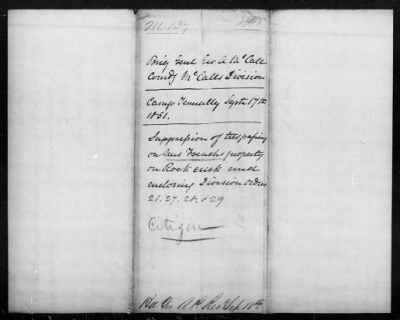 Brig Genl Geo A McCall
Comdg McCalls Division
Camp Tennally Sept 17th
1861.
Suppression of trespassing
on Mrs French's property
on Rock creek and
enclosing Division orders
21. 27. 28. & 29
Citizen
Hd Qrs A P Rec Sep 18th